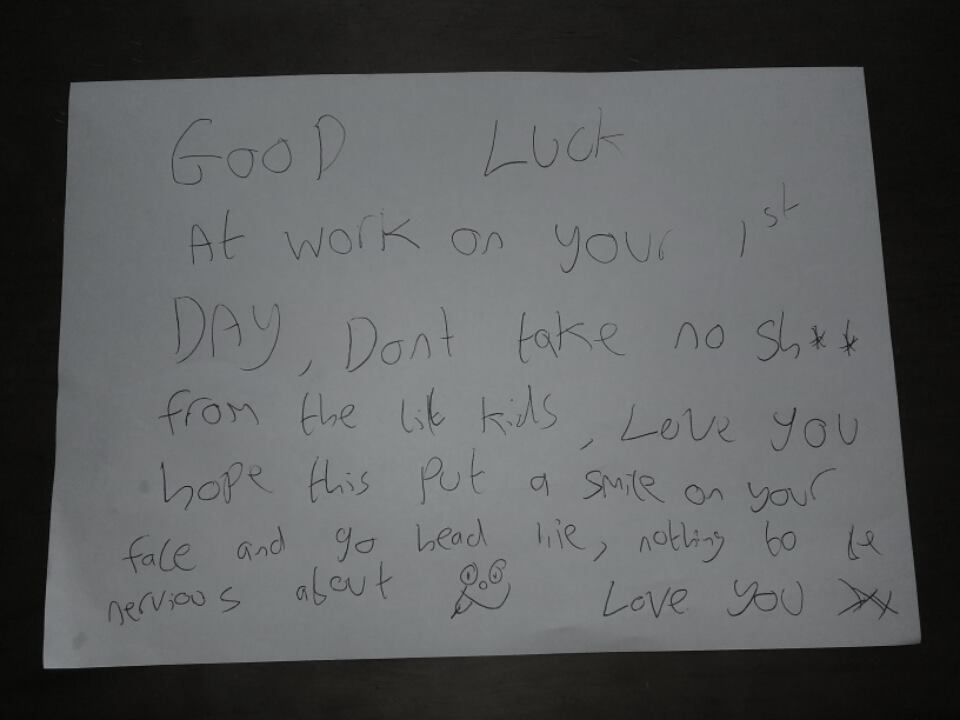 GOOD LUCK
At work on your 1st
DAY, Dont take no sh**
from the lit kids, Love you
hope this put a smile on your
face and go head, nothing to be
nervious about
Love you xx